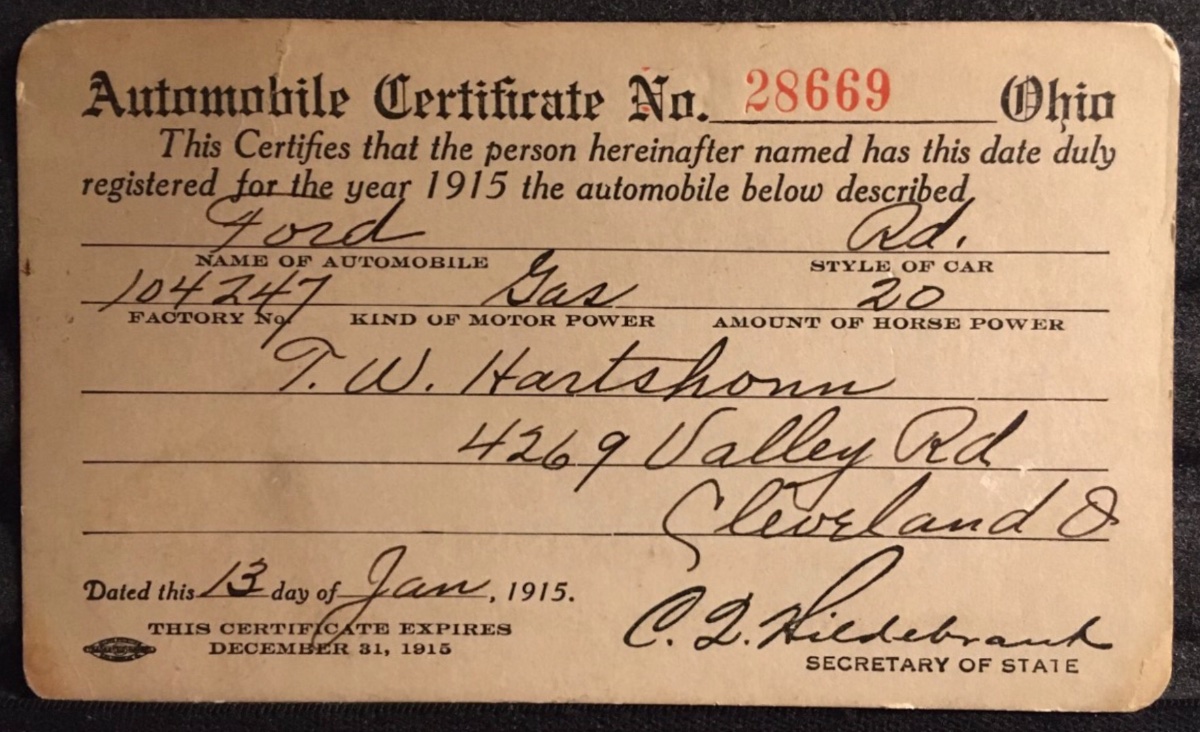 Automobile Certificate No. 28669 Ohio
This Certifies that the person hereinafter named has this date duly
registered for the year 1915 the automobile below described
Ford Rd.
NAME OF AUTOMOBILE STYLE OF CAR
104247 Gas 20
FACTORY No. KIND OF MOTOR POWER AMOUNT OF HORSE POWER
T. W. Hartshorn
4269 Valley Rd
Cleveland O
Dated this 13 day of Jan, 1915.
THIS CERTIFICATE EXPIRES
DECEMBER 31, 1915
C. Q. Hildebrant
SECRETARY OF STATE